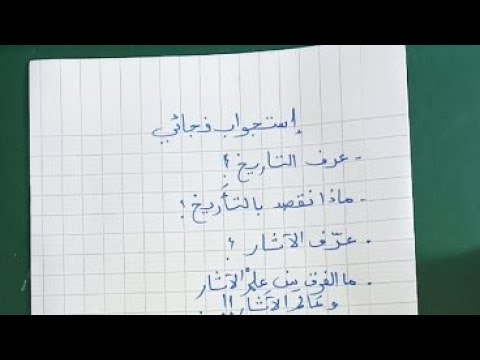 إستجواب فجائي
- عرف التاريخ ؟
- ماذا نقصد بالتأريخ ؟
- عرّف الآثار ؟
- ما الفرق بين عِلمْ الآثار
وعَالم الآثار !!